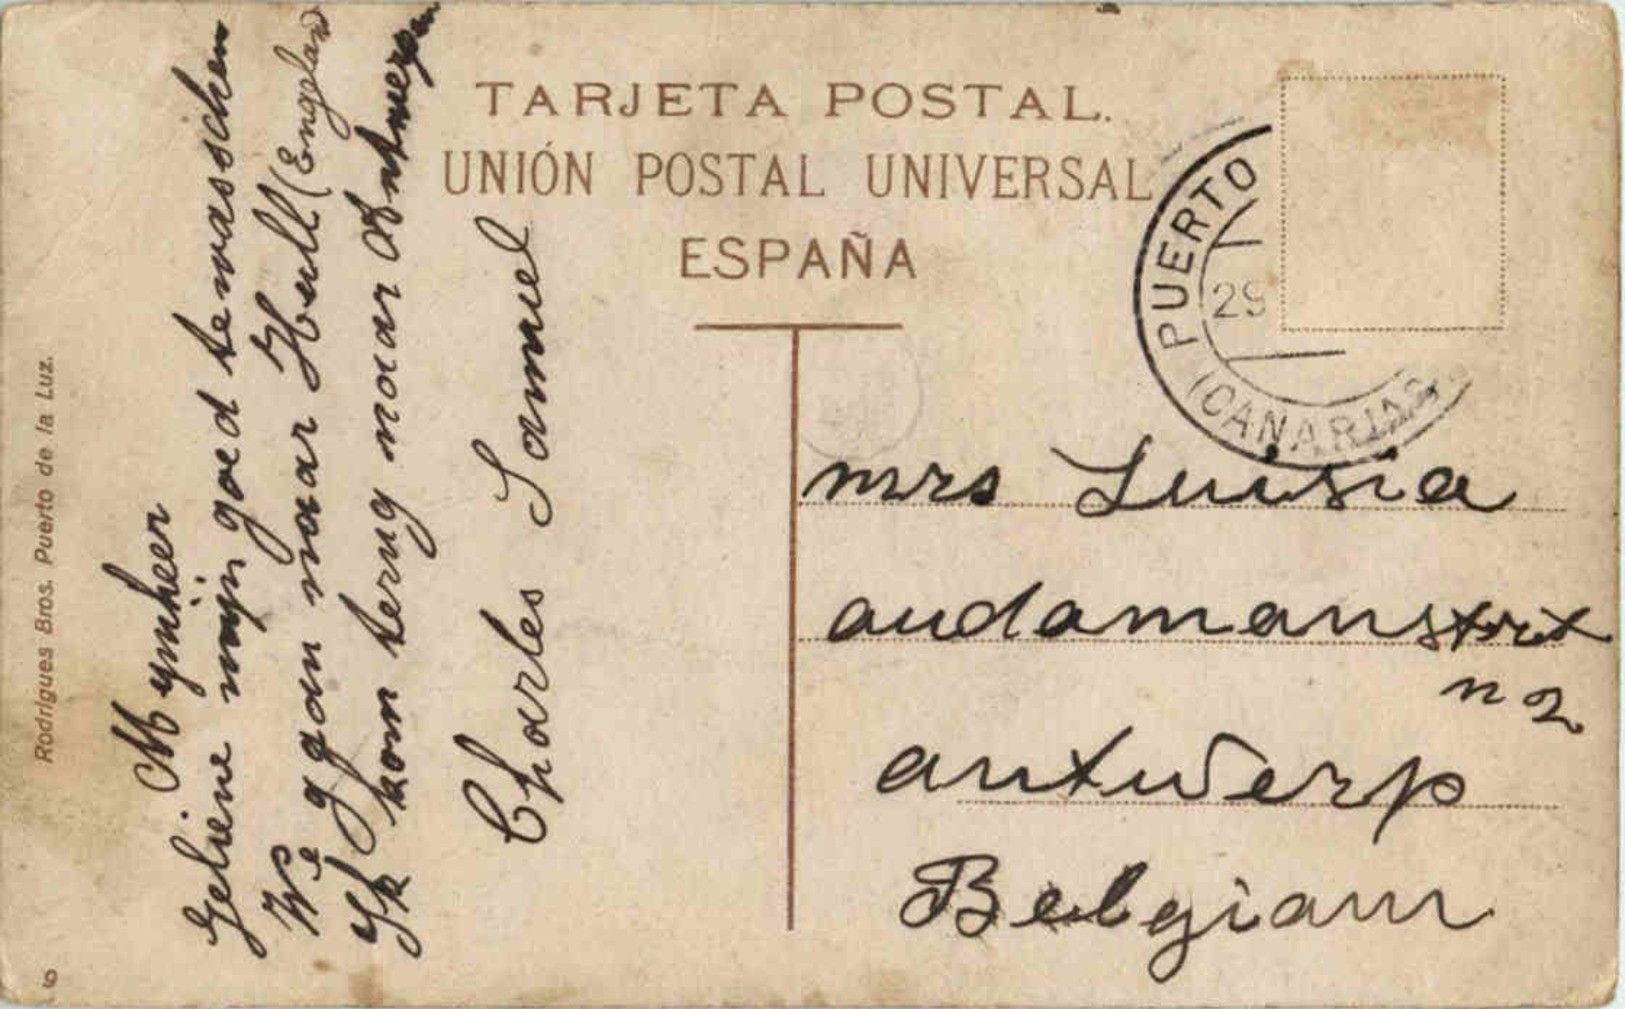 TARJETA POSTAL.
UNIÓN POSTAL UNIVERSAL
ESPAÑA
Rodrigues Bros. Puerto de la Luz.
9
Mynheer
Geliene mijn goed tewasschen
We gaan naar Hull (Engeland
Ik kom terug naar Antwerpen
Charles Samuel
PUERTO
29
(CANARIAS)
mrs Luisia
audamanstrt
n 2
antwerp
Belgiam